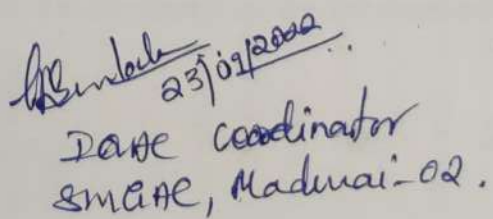 23/09/2022
IQAC Coordinator
SMGAC, Madurai-02.